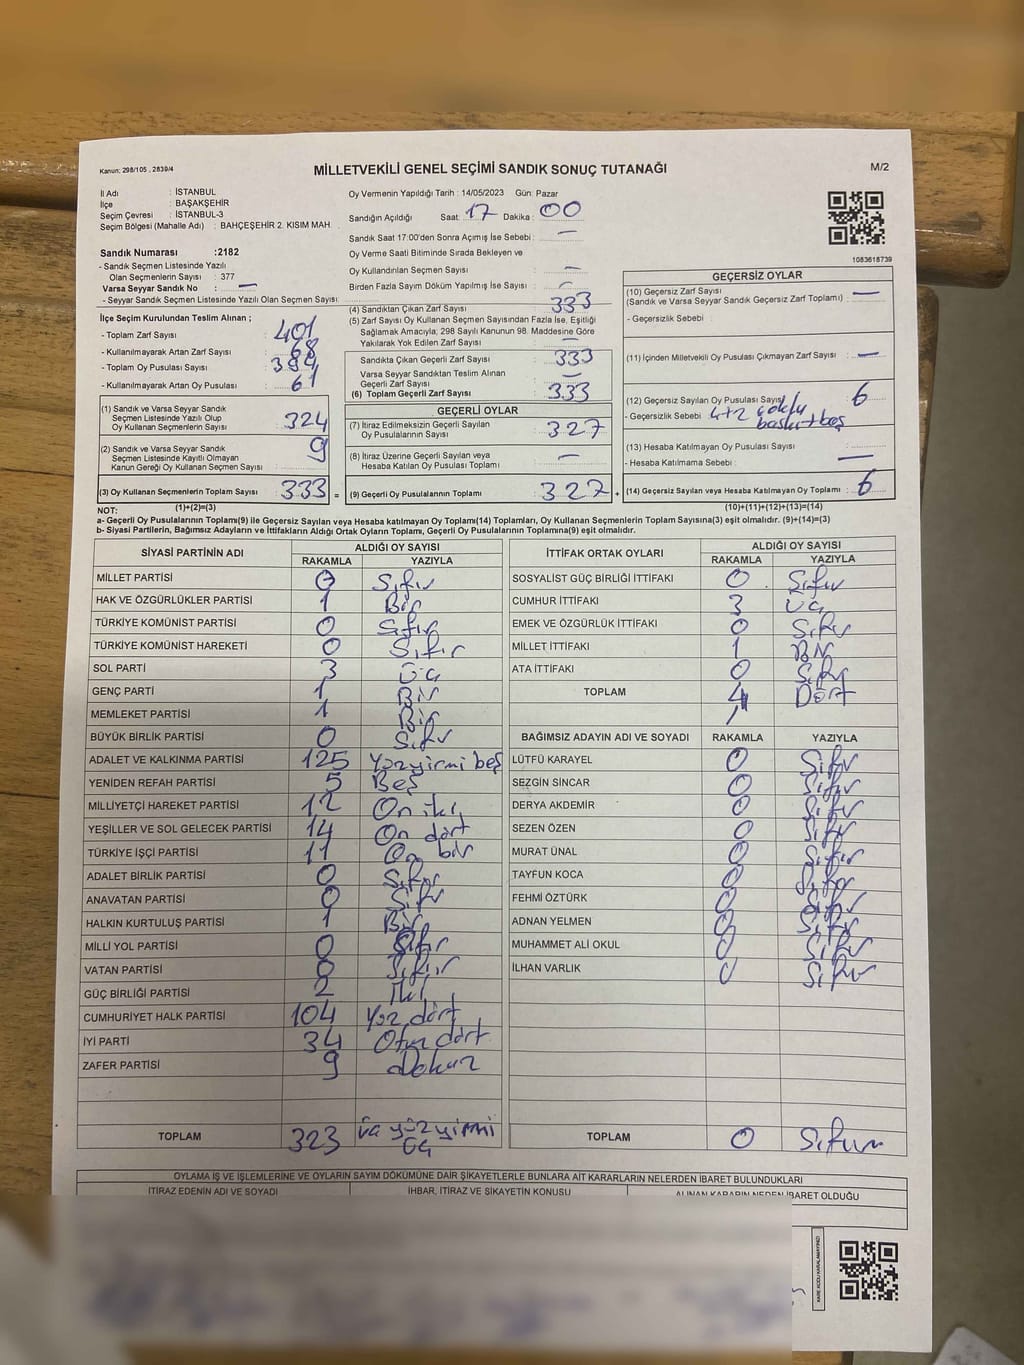 Kanun: 298/105 , 2839/4
MİLLETVEKİLİ GENEL SEÇİMİ SANDIK SONUÇ TUTANAĞI
M/2
İl Adı : İSTANBUL
İlçe : BAŞAKŞEHİR
Seçim Çevresi : İSTANBUL-3
Seçim Bölgesi (Mahalle Adı) : BAHÇEŞEHİR 2. KISIM MAH.
Sandık Numarası :2182
- Sandık Seçmen Listesinde Yazılı
Olan Seçmenlerin Sayısı : 377
Varsa Seyyar Sandık No : —
- Seyyar Sandık Seçmen Listesinde Yazılı Olan Seçmen Sayısı:
Oy Vermenin Yapıldığı Tarih : 14/05/2023 Gün: Pazar
Sandığın Açıldığı Saat: 17 Dakika: 00
Sandık Saat 17:00'den Sonra Açımış İse Sebebi : —
Oy Verme Saati Bitiminde Sırada Bekleyen ve
Oy Kullandırılan Seçmen Sayısı : —
Birden Fazla Sayım Döküm Yapılmış İse Sayısı : —
1083618739
İlçe Seçim Kurulundan Teslim Alınan ;
- Toplam Zarf Sayısı : 401
- Kullanılmayarak Artan Zarf Sayısı : 68
- Toplam Oy Pusulası Sayısı :
- Kullanılmayarak Artan Oy Pusulası : 61
(1) Sandık ve Varsa Seyyar Sandık
Seçmen Listesinde Yazılı Olup
Oy Kullanan Seçmenlerin Sayısı : 324
(2) Sandık ve Varsa Seyyar Sandık
Seçmen Listesinde Kayıtlı Olmayan
Kanun Gereği Oy Kullanan Seçmen Sayısı : 9
(3) Oy Kullanan Seçmenlerin Toplam Sayısı : 333 =
(1)+(2)=(3)
(4) Sandıktan Çıkan Zarf Sayısı : 333
(5) Zarf Sayısı Oy Kullanan Seçmenlerden Fazla İse, Eşitliği
Sağlamak Amacıyla; 298 Sayılı Kanunun 98. Maddesine Göre
Yakılarak Yok Edilen Zarf Sayısı : —
Sandıkta Çıkan Geçerli Zarf Sayısı : 333
Varsa Seyyar Sandıktan Teslim Alınan
Geçerli Zarf Sayısı : —
(6) Toplam Geçerli Zarf Sayısı : 333
GEÇERLİ OYLAR
(7) İtiraz Edilmeksizin Geçerli Sayılan
Oy Pusulalarının Sayısı : 327
(8) İtiraz Üzerine Geçerli Sayılan veya
Hesaba Katılan Oy Pusulası Toplamı : —
(9) Geçerli Oy Pusulalarının Toplamı : 327 +
GEÇERSİZ OYLAR
(10) Geçersiz Zarf Sayısı
(Sandık ve Varsa Seyyar Sandık Geçersiz Zarf Toplamı) : —
- Geçersizlik Sebebi :
(11) İçinden Milletvekili Oy Pusulası Çıkmayan Zarf Sayısı : —
(12) Geçersiz Sayılan Oy Pusulası Sayısı : 6
- Geçersizlik Sebebi : 4+2
(13) Hesaba Katılmayan Oy Pusulası Sayısı :
- Hesaba Katılmama Sebebi : —
(14) Geçersiz Sayılan veya Hesaba Katılmayan Oy Toplamı : 6
(10)+(11)+(12)+(13)=(14)
NOT:
a- Geçerli Oy Pusulalarının Toplamı(9) ile Geçersiz Sayılan veya Hesaba katılmayan Oy Toplamı(14) Toplamları, Oy Kullanan Seçmenlerin Toplam Sayısına(3) eşit olmalıdır. (9)+(14)=(3)
b- Siyasi Partilerin, Bağımsız Adayların ve İttifakların Aldığı Ortak Oyların Toplamı, Geçerli Oy Pusulalarının Toplamına(9) eşit olmalıdır.
SİYASİ PARTİNİN ADI ALDIĞI OY SAYISI
RAKAMLA YAZIYLA
MİLLET PARTİSİ 0 Sıfır
HAK VE ÖZGÜRLÜKLER PARTİSİ 1 Bir
TÜRKİYE KOMÜNİST PARTİSİ 0 Sıfır
TÜRKİYE KOMÜNİST HAREKETİ 0 Sıfır
SOL PARTİ 3 Üç
GENÇ PARTİ 1 Bir
MEMLEKET PARTİSİ 1 Bir
BÜYÜK BİRLİK PARTİSİ 0 Sıfır
ADALET VE KALKINMA PARTİSİ 125 Yüzyirmi beş
YENİDEN REFAH PARTİSİ 5 Beş
MİLLİYETÇİ HAREKET PARTİSİ 12 On iki
YEŞİLLER VE SOL GELECEK PARTİSİ 14 On dört
TÜRKİYE İŞÇİ PARTİSİ 11 On bir
ADALET BİRLİK PARTİSİ 0 Sıfır
ANAVATAN PARTİSİ 0 Sıfır
HALKIN KURTULUŞ PARTİSİ 1 Bir
MİLLİ YOL PARTİSİ 0 Sıfır
VATAN PARTİSİ 0 Sıfır
GÜÇ BİRLİĞİ PARTİSİ 2 İki
CUMHURİYET HALK PARTİSİ 104 Yüz dört
İYİ PARTİ 34 Otuz dört
ZAFER PARTİSİ 9 Dokuz
TOPLAM 323 üç yüz yirmi
üç
İTTİFAK ORTAK OYLARI ALDIĞI OY SAYISI
RAKAMLA YAZIYLA
SOSYALİST GÜÇ BİRLİĞİ İTTİFAKI 0 Sıfır
CUMHUR İTTİFAKI 3 Üç
EMEK VE ÖZGÜRLÜK İTTİFAKI 0 Sıfır
MİLLET İTTİFAKI 1 Bir
ATA İTTİFAKI 0 Sıfır
TOPLAM 4 Dört
BAĞIMSIZ ADAYIN ADI VE SOYADI RAKAMLA YAZIYLA
LÜTFÜ KARAYEL 0 Sıfır
SEZGİN SİNCAR 0 Sıfır
DERYA AKDEMİR 0 Sıfır
SEZEN ÖZEN 0 Sıfır
MURAT ÜNAL 0 Sıfır
TAYFUN KOCA 0 Sıfır
FEHMİ ÖZTÜRK 0 Sıfır
ADNAN YELMEN 0 Sıfır
MUHAMMET ALİ OKUL 0 Sıfır
İLHAN VARLIK 0 Sıfır
TOPLAM 0 Sıfır
OYLAMA İŞ VE İŞLEMLERİNE VE OYLARIN SAYIM DÖKÜMÜNE DAİR ŞİKAYETLERLE BUNLARA AİT KARARLARIN NELERDEN İBARET BULUNDUKLARI
İTİRAZ EDENİN ADI VE SOYADI İHBAR, İTİRAZ VE ŞİKAYETİN KONUSU ALINAN KARARIN NEDEN İBARET OLDUĞU
KARE KODU KARALAMAYINIZ!